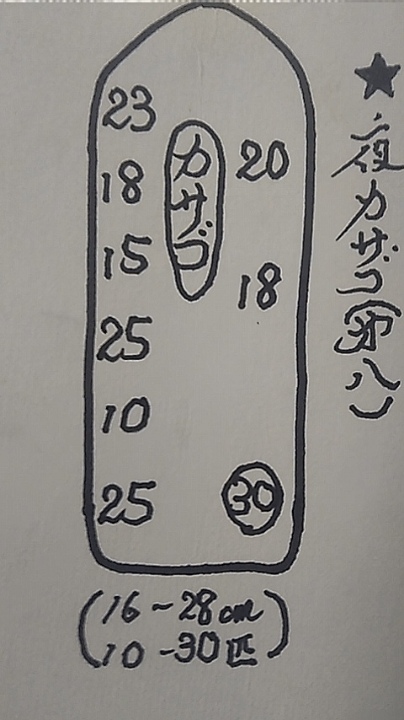 ★夜カサゴ(第八)
カサゴ
23
18
15
25
10
25
20
18
30
(16～28cm
10-30匹)